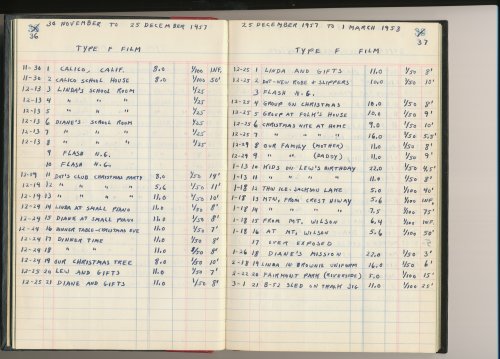 36
30 NOVEMBER TO 25 DECEMBER 1957
TYPE F FILM
11-30 1 CALICO, CALIF. 8.0 1/100 INF.
11-30 2 CALICO SCHOOL HOUSE 8.0 1/100 50'
12-13 3 LINDA'S SCHOOL ROOM 1/25
12-13 4 " " " 1/25
12-13 5 " " " 1/25
12-13 6 DIANE'S SCHOOL ROOM 1/25
12-13 7 " " " 1/25
12-13 8 " " " 1/25
9 FLASH N.G.
10 FLASH N.G.
12-19 11 DOT'S CLUB CHRISTMAS PARTY 8.0 1/50 14'
12-19 12 " " " " 5.6 1/50 11'
12-19 13 " " " " 11.0 1/50 10'
12-24 14 LINDA AT SMALL PIANO 11.0 1/50 8'
12-24 15 DIANE AT SMALL PIANO 11.0 1/50 8'
12-24 16 DINNER TABLE-CHRISTMAS EVE 11.0 1/50 7'
12-24 17 DINNER TIME 11.0 1/50 8'
12-24 18 " " 11.0 1/50 8'
12-24 19 OUR CHRISTMAS TREE 8.0 1/50 10'
12-25 20 LEW AND GIFTS 11.0 1/50 7'
12-25 21 DIANE AND GIFTS 11.0 1/50 8'
25 DECEMBER 1957 TO 1 MARCH 1958
37
TYPE F FILM
12-25 1 LINDA AND GIFTS 11.0 1/50 8'
12-25 2 DOT-NEW ROBE & SLIPPERS 10.0 1/50 10'
3 FLASH N.G.
12-25 4 GROUP ON CHRISTMAS 10.0 1/50 8'
12-25 5 GROUP AT FOLK'S HOUSE 10.0 1/50 9'
12-25 6 CHRISTMAS NITE AT HOME 9.0 1/50 10'
12-25 7 " " " " 16.0 1/50 5.5'
12-29 8 OUR FAMILY (MOTHER) 11.0 1/50 8'
12-29 9 " " (DADDY) 11.0 1/50 9'
1-13 10 KIDS ON LEW'S BIRTHDAY 22.0 1/50 4.5'
1-13 11 " " " " 11.0 1/50 8'
1-18 12 THIN ICE-JACKMO LAKE 5.0 1/100 40'
1-18 13 MTN. FROM CREST HIWAY 5.6 1/100 INF.
1-18 14 " " " " 7.5 1/100 75'
1-18 15 FROM MT. WILSON 6.4 1/100 INF.
1-18 16 AT MT. WILSON 5.6 1/100 50'
17 OVER EXPOSED
1-26 18 DIANE'S MISSION 22.0 1/50 3'
2-18 19 LINDA IN BROWNIE UNIFORM 16.0 1/50 6'
2-22 20 FAIRMONT PARK (RIVERSIDE) 5.0 1/100 15'
3-1 21 B-52 SLED ON TRACK 11.0 1/100 25'